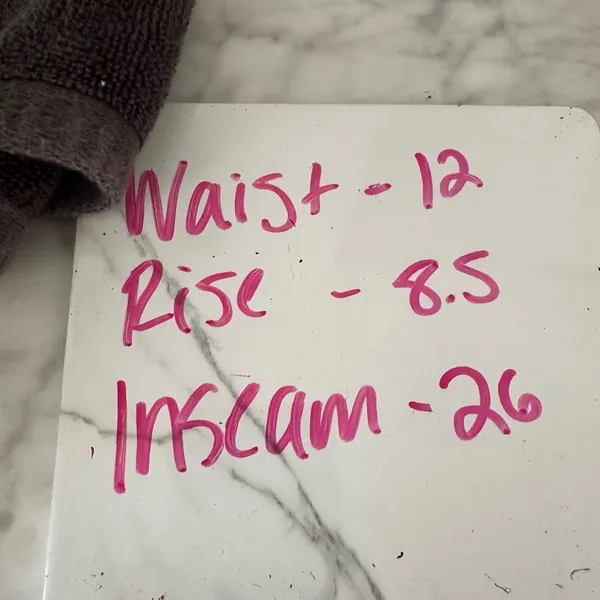 Waist - 12
Rise - 8.5
Inseam - 26